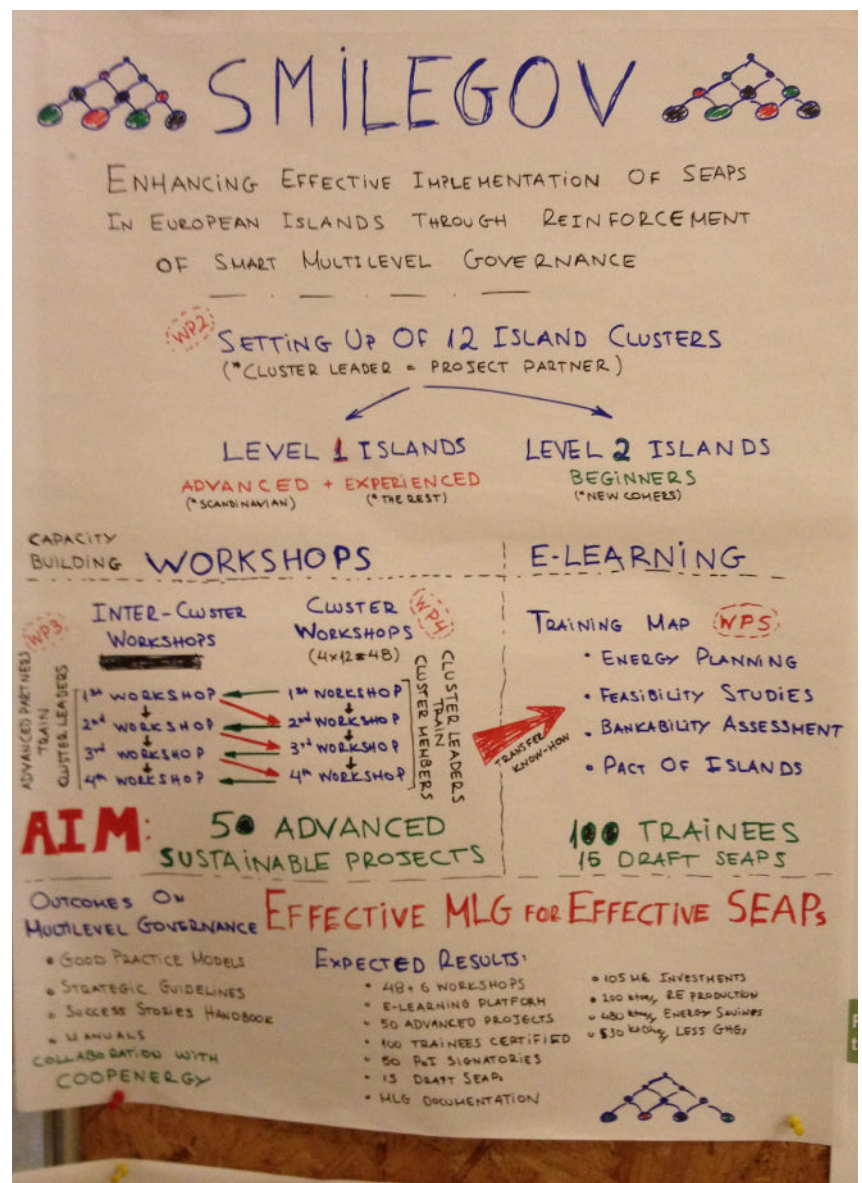 SMILEGOV
ENHANCING EFFECTIVE IMPLEMENTATION OF SEAPS
IN EUROPEAN ISLANDS THROUGH REINFORCEMENT
OF SMART MULTILEVEL GOVERNANCE
WP2
SETTING UP OF 12 ISLAND CLUSTERS
(*CLUSTER LEADER = PROJECT PARTNER)
LEVEL 1 ISLANDS
ADVANCED + EXPERIENCED
(*SCANDINAVIAN) (*THE REST)
LEVEL 2 ISLANDS
BEGINNERS
(*NEW COMERS)
CAPACITY
BUILDING WORKSHOPS
WP3
INTER-CLUSTER
WORKSHOPS
ADVANCED PARTNERS
TRAIN
CLUSTER LEADERS
1st WORKSHOP
2nd WORKSHOP
3rd WORKSHOP
4th WORKSHOP
CLUSTER
WORKSHOPS
(4x12=48)
WP4
1st WORKSHOP
2nd WORKSHOP
3rd WORKSHOP
4th WORKSHOP
CLUSTER LEADERS
TRAIN
CLUSTER MEMBERS
TRANSFER
KNOW-HOW
E-LEARNING
TRAINING MAP WP5
• ENERGY PLANNING
• FEASIBILITY STUDIES
• BANKABILITY ASSESSMENT
• PACT OF ISLANDS
AIM:
50 ADVANCED
SUSTAINABLE PROJECTS
100 TRAINEES
15 DRAFT SEAPS
OUTCOMES ON
MULTILEVEL GOVERNANCE
EFFECTIVE MLG FOR EFFECTIVE SEAPs
• GOOD PRACTICE MODELS
• STRATEGIC GUIDELINES
• SUCCESS STORIES HANDBOOK
• MANUALS
COLLABORATION WITH
COOPENERGY
EXPECTED RESULTS:
• 48+6 WORKSHOPS
• E-LEARNING PLATFORM
• 50 ADVANCED PROJECTS
• 100 TRAINEES CERTIFIED
• 50 PoI SIGNATORIES
• 15 DRAFT SEAPs
• MLG DOCUMENTATION
• 105 M€ INVESTMENTS
• 200 RE PRODUCTION
• 480 ENERGY SAVINGS
• 530 LESS GHGs